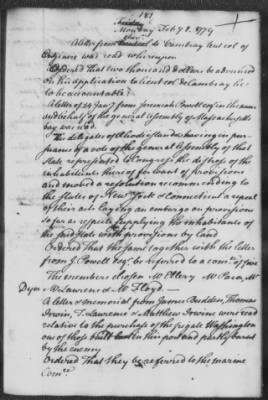 181
Monday Feby 8. 1779
A letter from de Cambray lieut col of
Engineers was read whereupon
Ordered that two thousand dollars be advanced
on his application to lieut col de Cambray he
to be accountable.
A letter of 29 Jany from Jeremiah Powell esqr in the name
and behalf of the general Assembly of Massachusetts
bay was read.
The delegates of Rhode island &c having in pur-
suance of a vote of the general Assembly of that
State represented to Congress the distress of the
inhabitants thereof for want of provisions
and moved a resolution recommending to
the states of New York & Connecticut a repeal
of their acts laying an embargo on provisions
so far as respects supplying the inhabitants of
the said state with provisions by land
Ordered That the same together with the letter
from J Powell Esqr be referred to a comee of five
The members chosen Mr Ellery Mr Paca, Mr
Dyer Mr Laurens & Mr Floyd
A letter & memorial from James Budden, Thomas
Irwin, T. Lawrence & Matthew Irwin were read
relative to the purchase of the frigate Washington
one of those built in this port and partly burnt
by the enemy
Ordered That they be referred to the marine
Comee